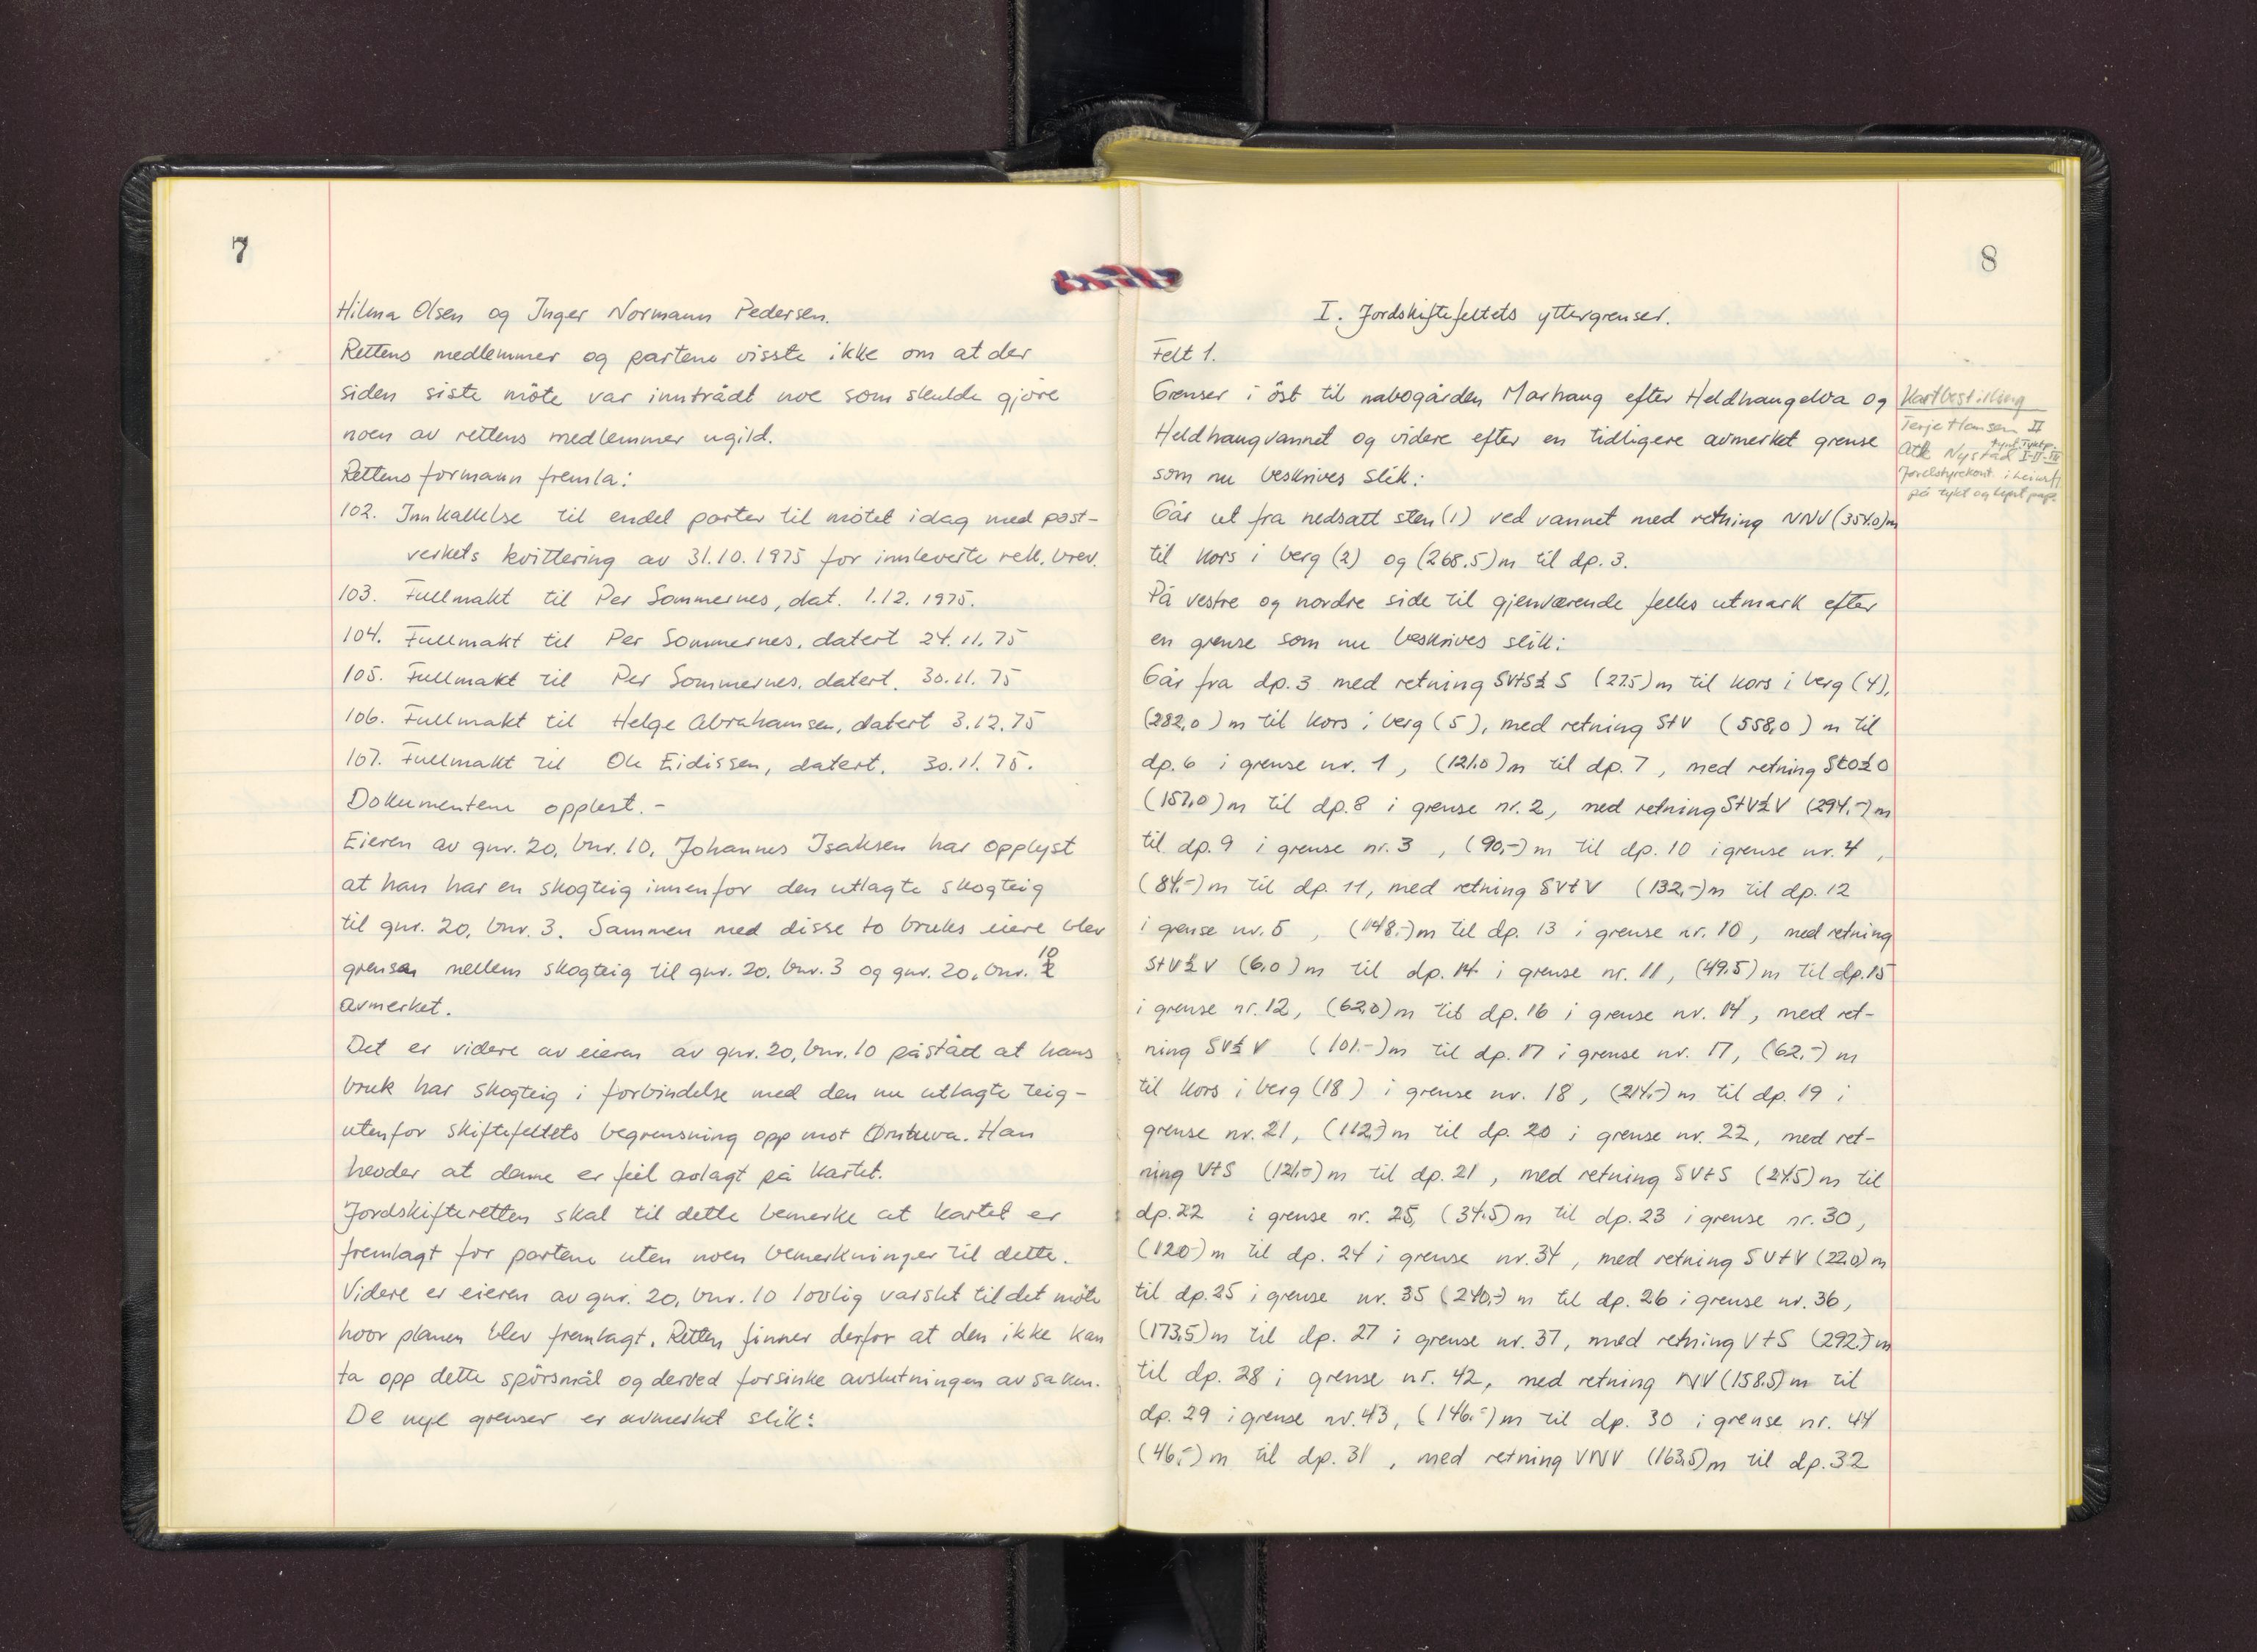 7
Hilma Olsen og Inger Normann Pedersen.
Rettens medlemmer og partene visste ikke om at der
siden siste möte var inntrådt noe som skulde gjöre
noen av rettens medlemmer ugild.
Rettens formann fremla:
102. Innkallelse til endel parter til mötet idag med post-
verkets kvittering av 31.10.1975 for innleverte rek. brev.
103. Fullmakt til Per Sommernes, dat. 1.12. 1975.
104. Fullmakt til Per Sommernes, datert 24.11.75
105. Fullmakt til Per Sommernes, datert. 30.11.75
106. Fullmakt til Helge Abrahamsen, datert 3.12.75
107. Fullmakt til Ole Eidissen, datert. 30.11.75.
Dokumentene opplest.-
Eieren av gnr. 20, bnr. 10, Johannes Isaksen har opplyst
at han har en skogteig innenfor den utlagte skogteig
til gnr. 20, bnr. 3. Sammen med disse to bruks eiere blev
grensen mellem skogteig til gnr. 20, bnr. 3 og gnr. 20, bnr. 10
avmerket.
Det er videre av eieren av gnr. 20, bnr. 10 påstått at hans
bruk har skogteig i forbindelse med den nu utlagte teig-
utenfor skiftefeltets begrensning opp mot Örntuva. Han
hevder at denne er feil avlagt på kartet.
Jordskifteretten skal til dette bemerke at kartet er
fremlagt for partene uten noen bemerkninger til dette.
Videre er eieren av gnr. 20, bnr. 10 lovlig varslet til det möte
hvor planen blev fremlagt. Retten finner derfor at den ikke kan
ta opp dette spörsmål og derved forsinke avslutningen av saken.
De nye grenser er avmerket slik:
8
I. Jordskiftefeltets yttergrenser.
Felt 1.
Grenser i öst til nabogården Marhaug efter Heldhaugelva og
Heldhaugvannet og videre efter en tidligere avmerket grense
som nu beskrives slik:
Går ut fra nedsatt sten (1) ved vannet med retning NNV (354.0)m
til kors i berg (2) og (268.5)m til dp. 3.
På vestre og nordre side til gjenværende felles utmark efter
en grense som nu beskrives slik:
Går fra dp. 3 med retning SVtS½S (275)m til kors i berg (4),
(282,0)m til kors i berg (5), med retning StV (558,0) m til
dp. 6 i grense nr. 1, (121.0)m til dp. 7, med retning StO½O
(157,0)m til dp. 8 i grense nr. 2, med retning StV½V (294,-)m
til dp. 9 i grense nr. 3, (90,-)m til dp. 10 i grense nr. 4,
(84,-)m til dp. 11, med retning SVtV (132,-)m til dp. 12
i grense nr. 5, (148,-)m til dp. 13 i grense nr. 10, med retning
StV½V (6,0)m til dp. 14 i grense nr. 11, (49,5)m til dp. 15
i grense nr. 12, (62,0)m til dp. 16 i grense nr. 14, med ret-
ning SV½V (101.-)m til dp. 17 i grense nr. 17, (62,-) m
til kors i berg (18) i grense nr. 18, (214,-) m til dp. 19 i
grense nr. 21, (112,-)m til dp. 20 i grense nr. 22, med ret-
ning VtS (121,-)m til dp. 21, med retning SVtS (24,5)m til
dp. 22 i grense nr. 25, (34,5)m til dp. 23 i grense nr. 30,
(120-)m til dp. 24 i grense nr. 34, med retning SVtV (22,0)m
til dp. 25 i grense nr. 35 (240,-) m til dp. 26 i grense nr. 36,
(173,5)m til dp. 27 i grense nr. 37, med retning VtS (292,-)m
til dp. 28 i grense nr. 42, med retning NV (158,5)m til
dp. 29 i grense nr. 43, (146,-)m til dp. 30 i grense nr. 44
(46,-)m til dp. 31, med retning VNV (163,5)m til dp. 32
Kartbestilling
Terje Hansen II
tynt. Tykt p.
Nystad I-II-III
Jordstyrekont. i
på tykt og tynt pap.